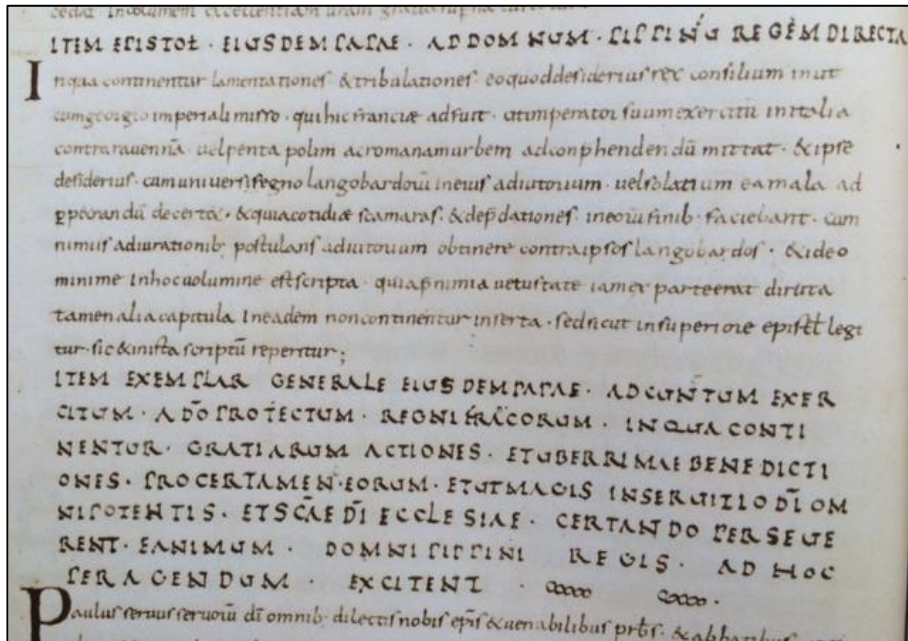 cedat. Incolumem excellentiam uram gratia
ITEM EPISTOŁ · EIUSDEM PAPAE · AD DOMNUM · PIPPINŪ REGEM DIRECTA
Inqua continentur lamentationes &tribulationes eoquod desiderius rex consilium iniit
cumgeorgio imperiali misso · qui hic franciae adfuit · ut imperator suum exercitū initalia
contra rauennā · uel penta polim acromanam urbem ad conphendendū mittat · &ipse
desiderius · cum uniuerso regno langobardorū ineius adiutorium · uel solatium ea mala ad
pperandū decertat · &quia cotidiae scamaras · &depdationes ineorū finib · faciebant · cum
nimiis adiurationib; postulans adiutorium obtinere contra ipsos langobardos · &ideo
minime Inhoc uolumine est scripta · quia p nimia uetustate iam ex parte erat diruta
tamen alia capitula Ineadem non continentur inserta · sed sicut in superiore epistł legi
tur · sic &inista scriptū reperitur;
ITEM EXEMPLAR GENERALE EIUSDEM PAPAE · AD CUNCTUM EXER
CITUM · A DŌ PROTECTUM · REGNI FRĀCORUM · IN QUA CONTI
NENTUR · GRATIARUM ACTIONES · ET UBERRIMAE BENEDICTI
ONES · PRO CERTAMEN · EORUM · ET UT MAGIS IN SERUITIO DĪ OM
NIPOTENTIS · ET SCĀE DĪ ECCLESIAE · CERTANDO PERSEUE
RENT · EANIMUM · DOMNI PIPPINI REGIS · AD HOC
PERAGENDUM · EXCITENT ·
Paulus seruus seruorū dī omnib; dilectis nobis epīs &uenabilibus prbīs · &abbatibus